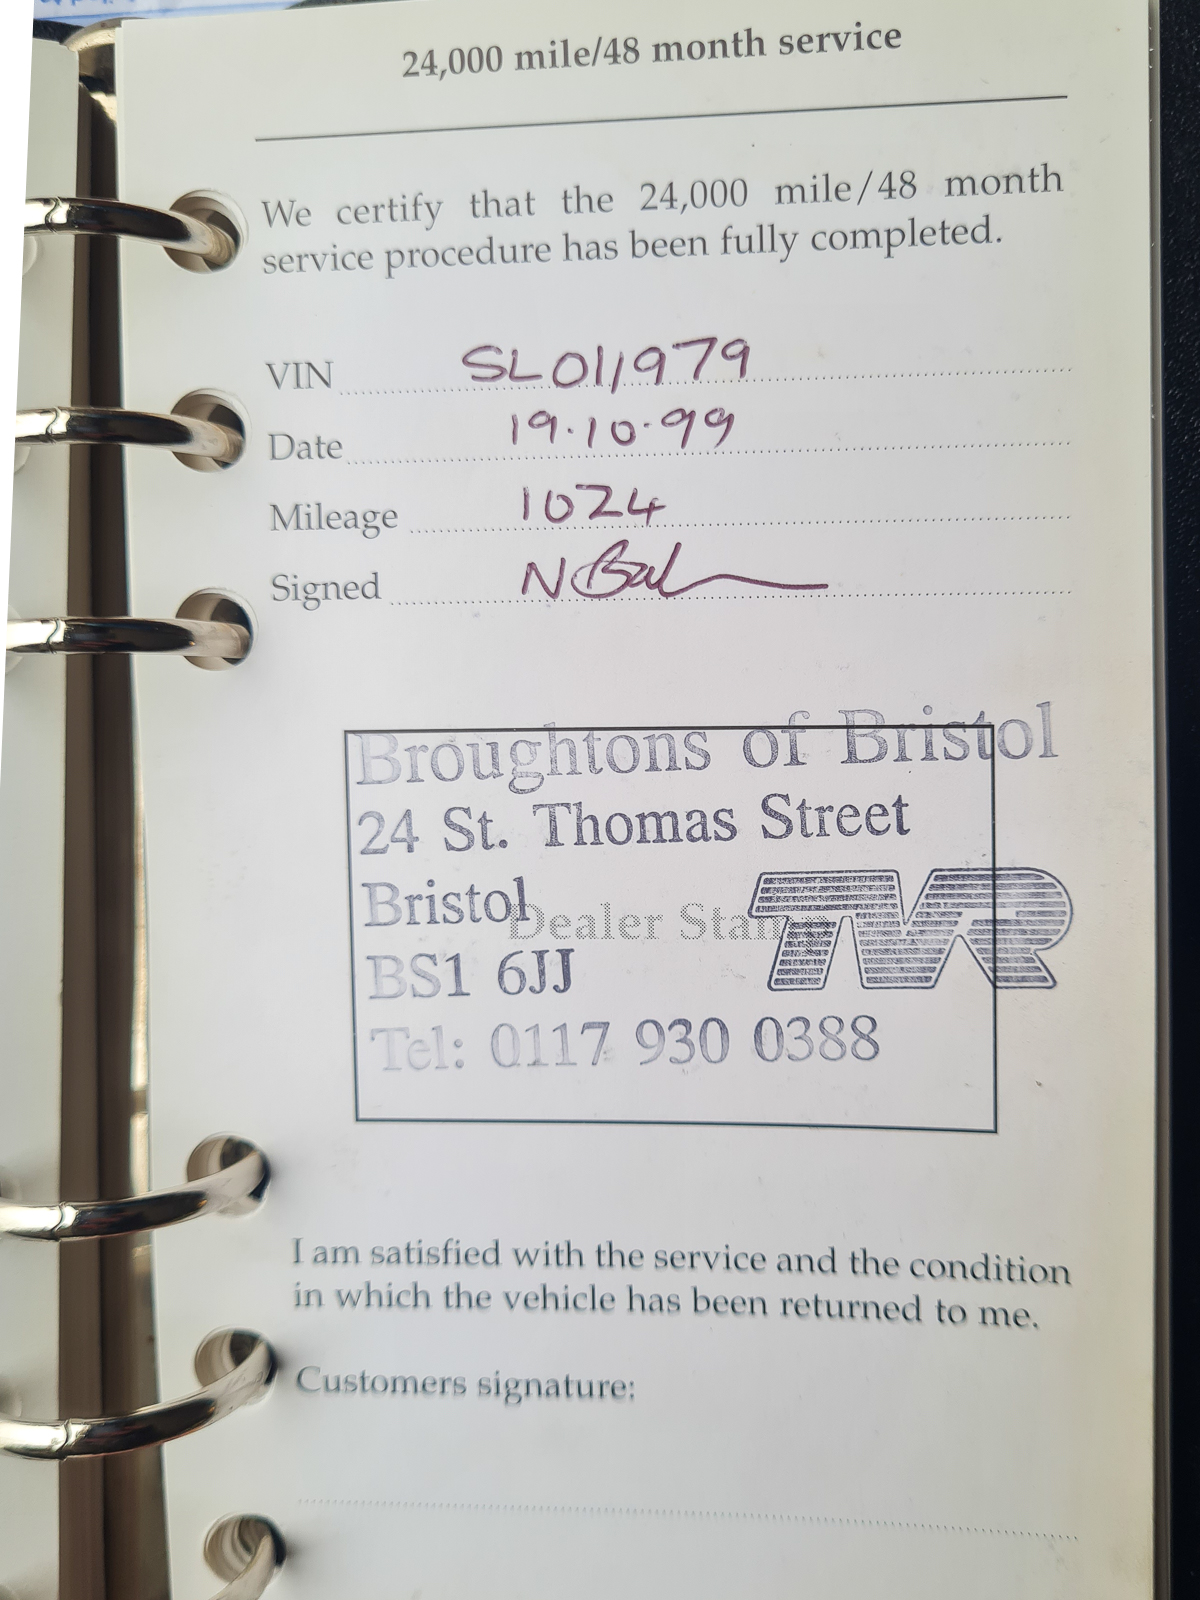 24,000 mile/48 month service
We certify that the 24,000 mile/48 month
service procedure has been fully completed.
VIN SL011979
Date 19.10.99
Mileage 1024
Signed
Broughtons of Bristol
24 St. Thomas Street
Bristol
Dealer Stamp
TVR
BS1 6JJ
Tel: 0117 930 0388
I am satisfied with the service and the condition
in which the vehicle has been returned to me.
Customers signature: